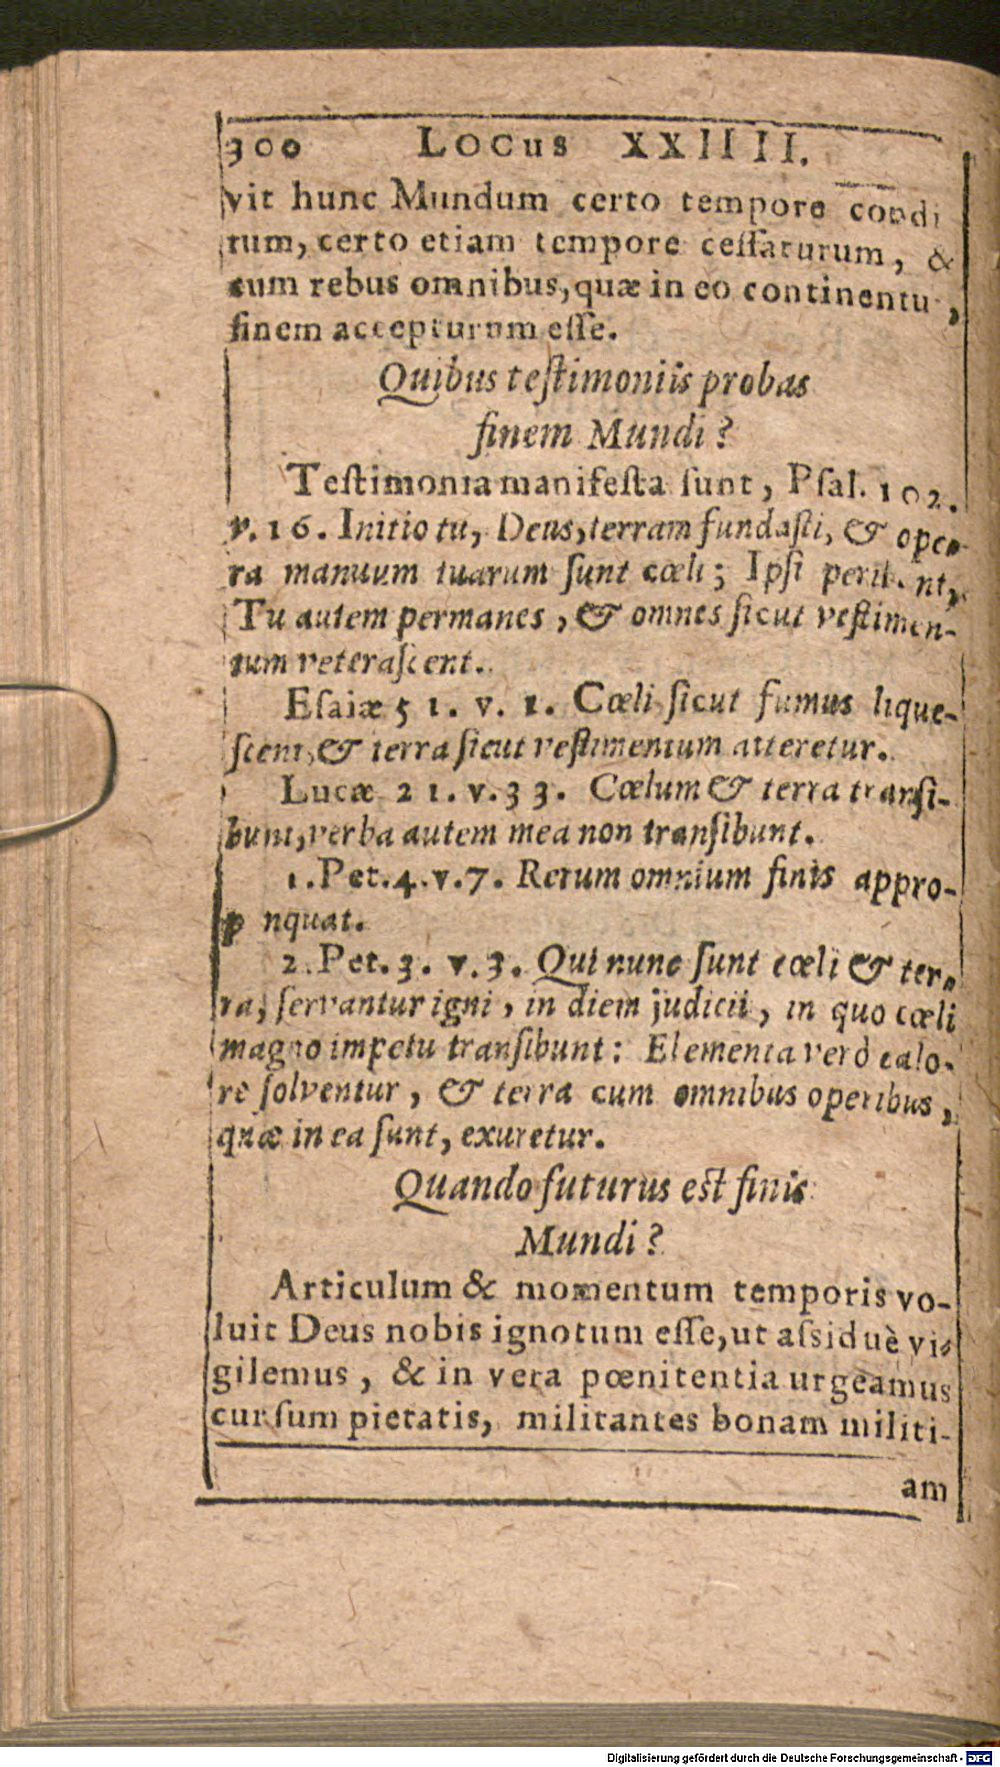 300 Locus XXIIIII.
vit hunc Mundum certo tempore condi
tum, certo etiam tempore ceſſaturum, &
cum rebus omnibus, quæ in eo continentur,
finem accepturum eſſe.
Quibus teſtimoniis probas
finem Mundi?
Teſtimonia manifeſta sunt, Pſal. 102.
v. 16. Initio tu, Deus, terram fundaſti, & ope-
ra manuum tuarum ſunt cœli; Ipſi peribunt,
Tu autem permanes, & omnes ſicut veſtimen-
tum veteraſcent.
Eſaiæ 51. v. 1. Cœli ſicut fumus lique-
ſcent, & terra ſicut veſtimentum atteretur.
Lucæ 21. v. 33. Cœlum & terra tranſi-
bunt, verba autem mea non tranſibunt.
1. Pet. 4. v. 7. Rerum omnium finis appro-
pinquat.
2. Pet. 3. v. 3. Qui nunc ſunt cœli & ter-
ra, ſervantur igni, in diem judicii, in quo cœli
magno impetu tranſibunt: Elementa verò calo-
re ſolventur, & terra cum omnibus operibus,
quæ in ea ſunt, exuretur.
Quando futurus eſt finis
Mundi?
Articulum & momentum temporis vo-
luit Deus nobis ignotum eſſe, ut aſsiduè vi-
gilemus, & in vera pœnitentia urgeamus
curſum pietatis, militantes bonam militi-
am
Digitalisierung gefördert durch die Deutsche Forschungsgemeinschaft - DFG